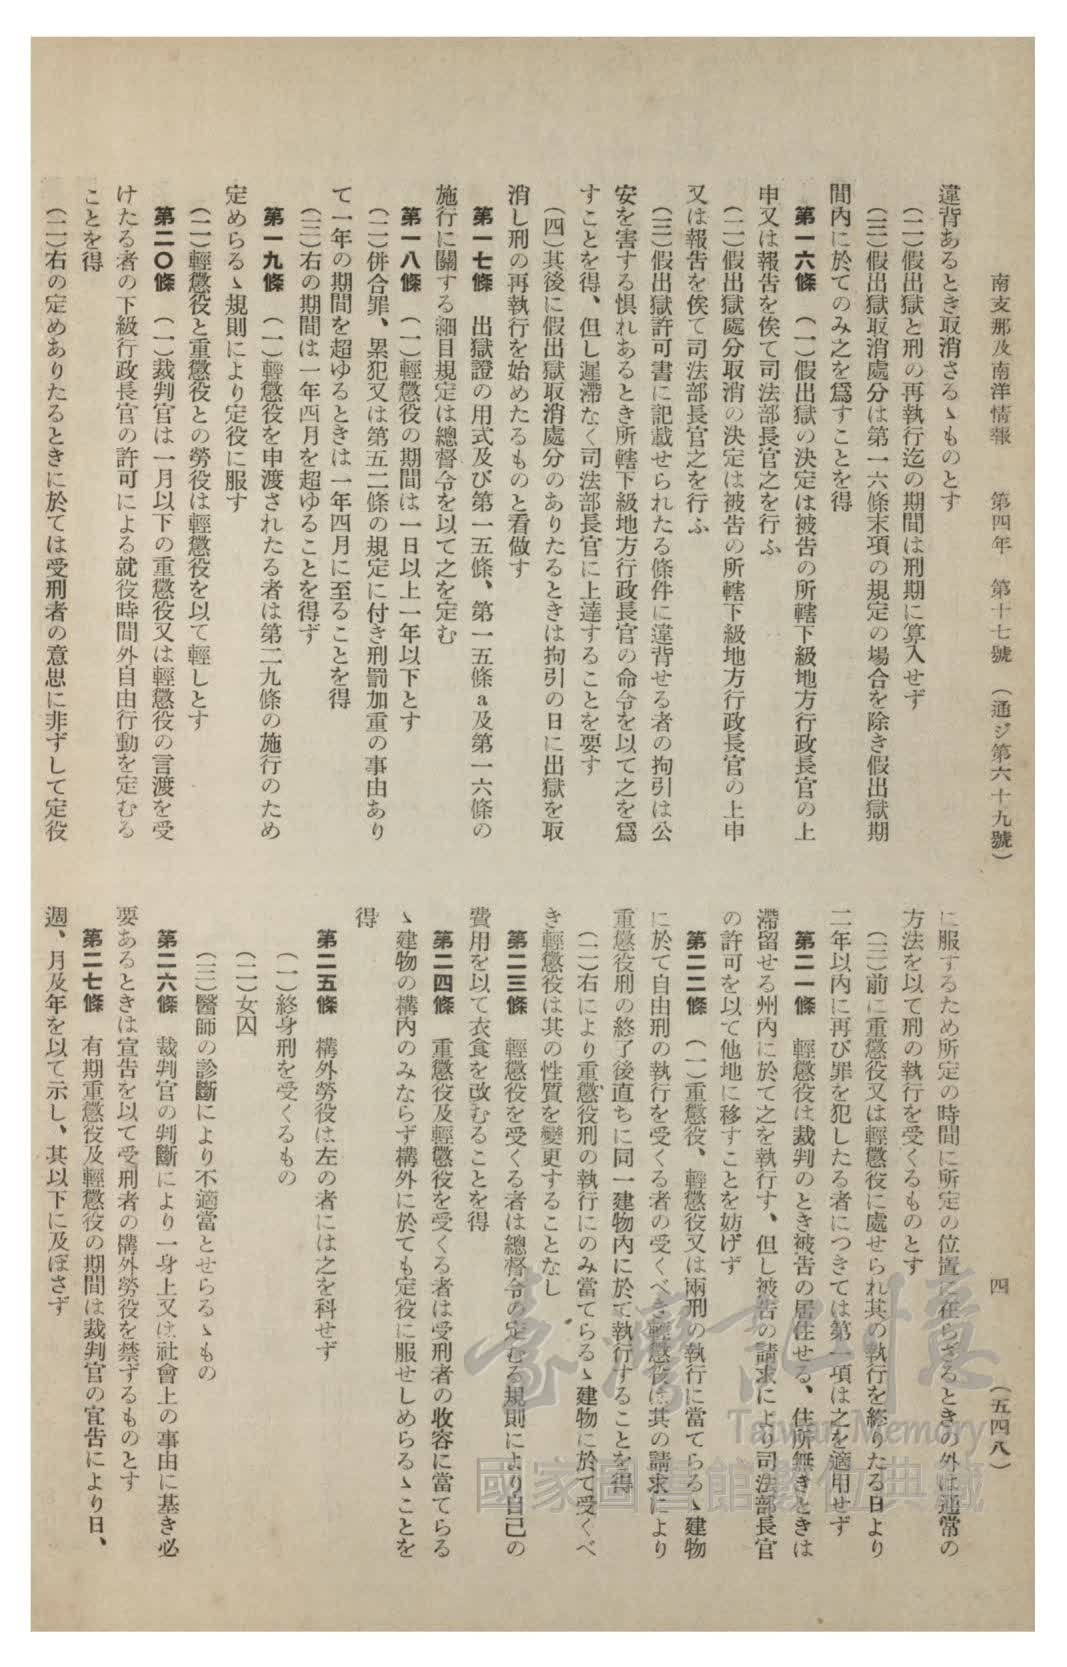 南支那及南洋情報 第四年 第十七號 (通ジ第六十九號) 四 (五四八)
違背あるとき取消さるゝものとす
(二)假出獄と刑の再執行迄の期間は刑期に算入せず
(三)假出獄取消處分は第一六條末項の規定の場合を除き假出獄期
間內に於てのみ之を爲すことを得
第一六條 (一)假出獄の決定は被告の所轄下級地方行政長官の上
申又は報告を俟て司法部長官之を行ふ
(二)假出獄處分取消の決定は被告の所轄下級地方行政長官の上申
又は報告を俟て司法部長官之を行ふ
(三)假出獄許可書に記載せられたる條件に違背せる者の拘引は公
安を害する惧れあるとき所轄下級地方行政長官の命令を以て之を爲
すことを得、但し遲滯なく司法部長官に上達することを要す
(四)其後に假出獄取消處分のありたるときは拘引の日に出獄を取
消し刑の再執行を始めたるものと看做す
第一七條 出獄證の用式及び第一五條、第一五條a及第一六條の
施行に關する細目規定は總督令を以て之を定む
第一八條 (一)輕懲役の期間は一日以上一年以下とす
(二)併合罪、累犯又は第五二條の規定に付き刑罰加重の事由あり
て一年の期間を超ゆるときは一年四月に至ることを得
(三)右の期間は一年四月を超ゆることを得ず
第一九條 (一)輕懲役を申渡されたる者は第二九條の施行のため
定めらるゝ規則により定役に服す
(二)輕懲役と重懲役との勞役は輕懲役を以て輕しとす
第二〇條 (一)裁判官は一月以下の重懲役又は輕懲役の言渡を受
けたる者の下級行政長官の許可による就役時間外自由行動を定むる
ことを得
(二)右の定めありたるときに於ては受刑者の意思に非ずして定役
に服するため所定の時間に所定の位置に在らざるときの外は通常の
方法を以て刑の執行を受くるものとす
(三)前に重懲役又は輕懲役に處せられ其の執行を終りたる日より
二年以內に再び罪を犯したる者につきては第一項は之を適用せず
第二一條 輕懲役は裁判のとき被告の居住せる、住所無きときは
滯留せる州內に於て之を執行す、但し被告の請求により司法部長官
の許可を以て他地に移すことを妨げず
第二二條 (一)重懲役、輕懲役又は兩刑の執行に當てらるゝ建物
に於て自由刑の執行を受くる者の受くべき輕懲役は其の請求により
重懲役刑の終了後直ちに同一建物內に於て執行することを得
(二)右により重懲役刑の執行にのみ當てらるゝ建物に於て受くべ
き輕懲役は其の性質を變更することなし
第二三條 輕懲役を受くる者は總督令の定むる規則により自己の
費用を以て衣食を改むることを得
第二四條 重懲役及輕懲役を受くる者は受刑者の收容に當てらる
ゝ建物の構內のみならず構外に於ても定役に服せしめらるゝことを
得
第二五條 構外勞役は左の者には之を科せず
(一)終身刑を受くるもの
(二)女囚
(三)醫師の診斷により不適當とせらるゝもの
第二六條 裁判官の判斷により一身上又は社會上の事由に基き必
要あるときは宣告を以て受刑者の構外勞役を禁ずるものとす
第二七條 有期重懲役及輕懲役の期間は裁判官の宣告により日、
週、月及年を以て示し、其以下に及ぼさず
臺灣記憶
Taiwan Memory
國家圖書館數位典藏